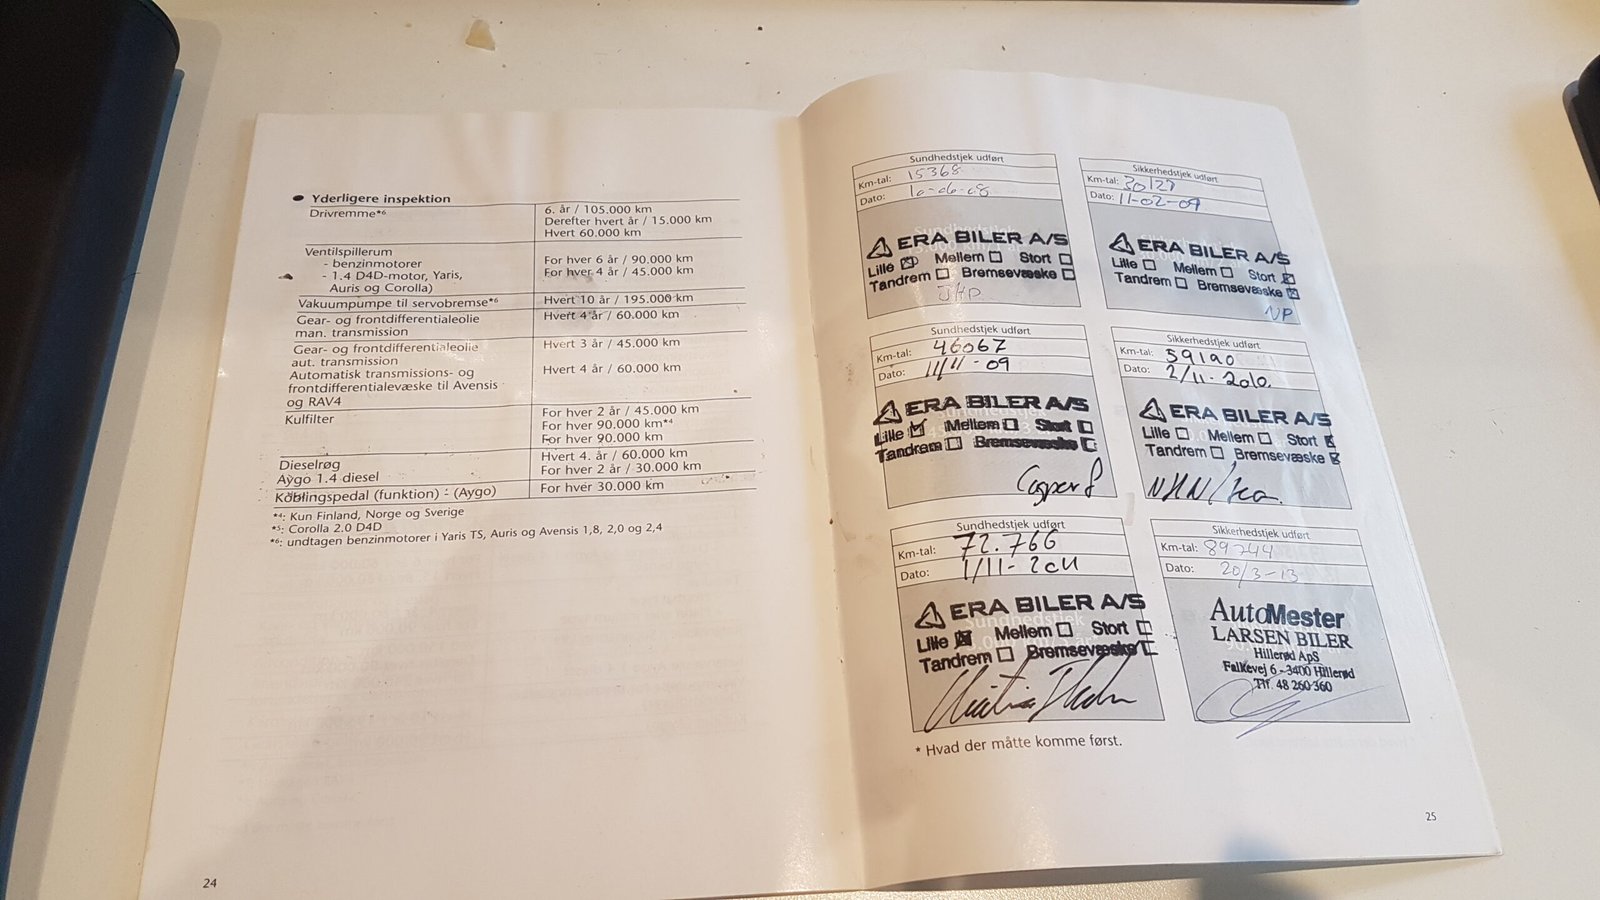 ● Yderligere inspektion
Drivremme*6
6. år / 105.000 km
Derefter hvert år / 15.000 km
Hvert 60.000 km
Ventilspillerum
- benzinmotorer
For hver 6 år / 90.000 km
- 1.4 D4D-motor, Yaris,
Auris og Corolla)
For hver 4 år / 45.000 km
Vakuumpumpe til servobremse*6
Hvert 10 år / 195.000 km
Gear- og frontdifferentialeolie
man. transmission
Hvert 4 år / 60.000 km
Gear- og frontdifferentialeolie
aut. transmission
Hvert 3 år / 45.000 km
Automatisk transmissions- og
frontdifferentialevæske til Avensis
og RAV4
Hvert 4 år / 60.000 km
Kulfilter
For hver 2 år / 45.000 km
For hver 90.000 km*4
For hver 90.000 km
Dieselrøg
Hvert 4. år / 60.000 km
Aygo 1.4 diesel
For hver 2 år / 30.000 km
Koblingspedal (funktion) - (Aygo)
For hver 30.000 km
*4: Kun Finland, Norge og Sverige
*5: Corolla 2.0 D4D
*6: undtagen benzinmotorer i Yaris TS, Auris og Avensis 1,8, 2,0 og 2,4
24
Sundhedstjek udført
Km-tal: 15368
Dato: 10-06-08
ERA BILER A/S
Lille Mellem Stort
Tandrem Bremsevæske
JHP
Sikkerhedstjek udført
Km-tal: 30127
Dato: 11-02-09
ERA BILER A/S
Lille Mellem Stort
Tandrem Bremsevæske
NP
Sundhedstjek udført
Km-tal: 46067
Dato: 11/11-09
ERA BILER A/S
Lille Mellem Stort
Tandrem Bremsevæske
Sikkerhedstjek udført
Km-tal: 59190
Dato: 2/11-2010.
ERA BILER A/S
Lille Mellem Stort
Tandrem Bremsevæske
Sundhedstjek udført
Km-tal: 72.766
Dato: 1/11-2011
ERA BILER A/S
Lille Mellem Stort
Tandrem Bremsevæske
Sikkerhedstjek udført
Km-tal: 89744
Dato: 20/3-13
AutoMester
LARSEN BILER
Hillerød ApS
Falkevej 6 - 3400 Hillerød
Tlf. 48 260 360
* Hvad der måtte komme først.
25